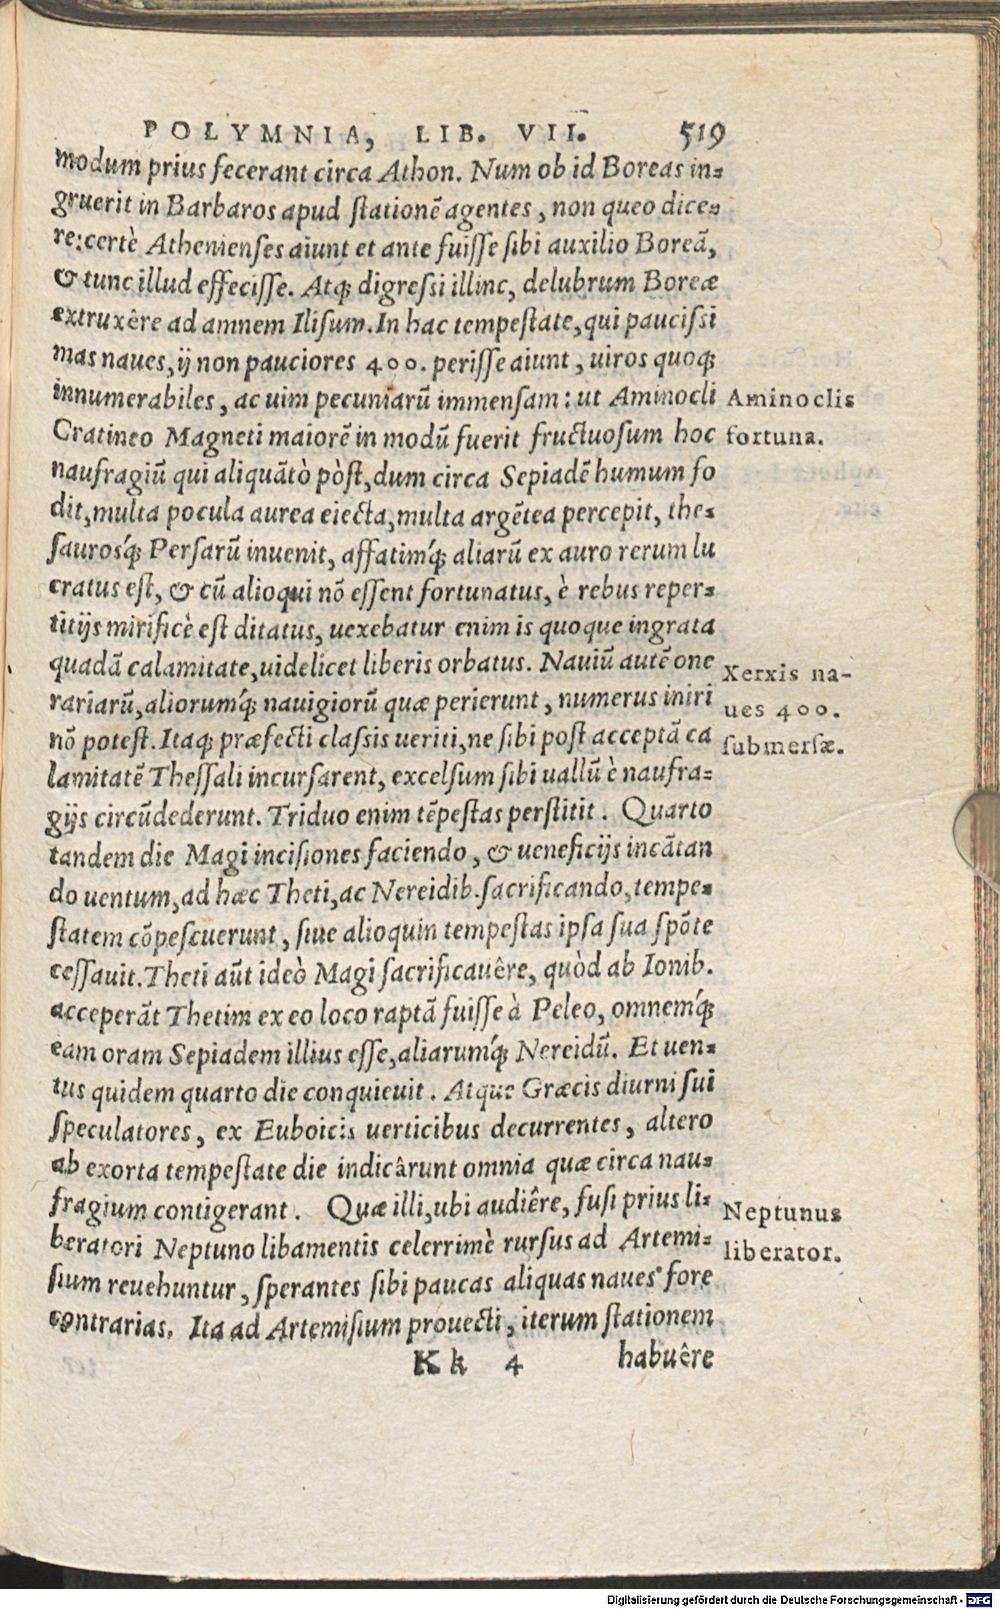 POLYMNIA, LIB. VII. 519
modum prius fecerant circa Athon. Num ob id Boreas in⸗
gruerit in Barbaros apud ſtationē agentes, non queo dice⸗
re: certè Athenienſes aiunt et ante fuiſſe ſibi auxilio Boreā,
& tunc illud effeciſſe. Atq; digreſsi illinc, delubrum Boreæ
extruxêre ad amnem Iliſum. In hac tempeſtate, qui pauciſsi
mas naues, ij non pauciores 400. periſſe aiunt, uiros quoq;
innumerabiles, ac uim pecuniarū immenſam: ut Aminocli
Cratineo Magneti maiorē in modū fuerit fructuoſum hoc
naufragiū qui aliquātò pòſt, dum circa Sepiadē humum fo
dit, multa pocula aurea eiecta, multa argētea percepit, the⸗
ſauroſq́; Perſarū inuenit, affatimq́; aliarū ex auro rerum lu
cratus eſt, & cū alioqui nō eſſent fortunatus, è rebus reper⸗
titijs mirificè eſt ditatus, uexebatur enim is quoque ingrata
quadā calamitate, uidelicet liberis orbatus. Nauiū autē one
rariarū, aliorumq́; nauigiorū quæ perierunt, numerus iniri
nō poteſt. Itaq; præfecti claſsis ueriti, ne ſibi poſt acceptā ca
lamitatē Theſſali incurſarent, excelſum ſibi uallū è naufra⸗
gijs circūdederunt. Triduo enim tēpeſtas perſtitit. Quarto
tandem die Magi inciſiones faciendo, & ueneficijs incātan
do uentum, ad hæc Theti, ac Nereidib. ſacrificando, tempe⸗
ſtatem cōpeſcuerunt, ſiue alioquin tempeſtas ipſa ſua ſpōte
ceſſauit. Theti aūt ideò Magi ſacrificauêre, quòd ab Ionib.
acceperāt Thetim ex eo loco raptā fuiſſe à Peleo, omnemq́;
eam oram Sepiadem illius eſſe, aliarumq́; Nereidū. Et uen⸗
tus quidem quarto die conquieuit. Atque Græcis diurni ſui
ſpeculatores, ex Euboicis uerticibus decurrentes, altero
ab exorta tempeſtate die indicârunt omnia quæ circa nau⸗
fragium contigerant. Quæ illi, ubi audiêre, fuſi prius li⸗
beratori Neptuno libamentis celerrimè rurſus ad Artemi⸗
ſium reuehuntur, ſperantes ſibi paucas aliquas naues fore
contrarias. Ita ad Artemiſium prouecti, iterum ſtationem
Kk 4 habuêre
Aminoclis
fortuna.
Xerxis na-
ues 400.
ſubmerſæ.
Neptunus
liberator.
Digitalisierung gefördert durch die Deutsche Forschungsgemeinschaft - DFG